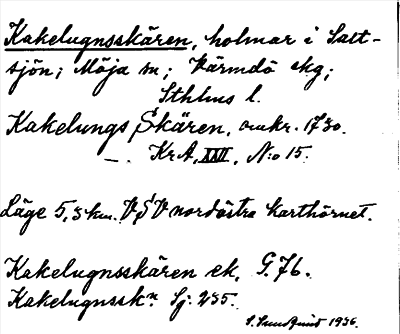 Kakelugnsskären, holmar i Salt-
sjön; Möja sn; Värmdö skg;
Sthlms l.
Kakelungs Skären, omkr. 1730.
—. KrA, XXII, N:o 15.
Läge 5,3 km. VSV nordöstra karthörnet.
Kakelugnsskären ek, G.76.
Kakelugnssk:n Sj: 235.
1936.